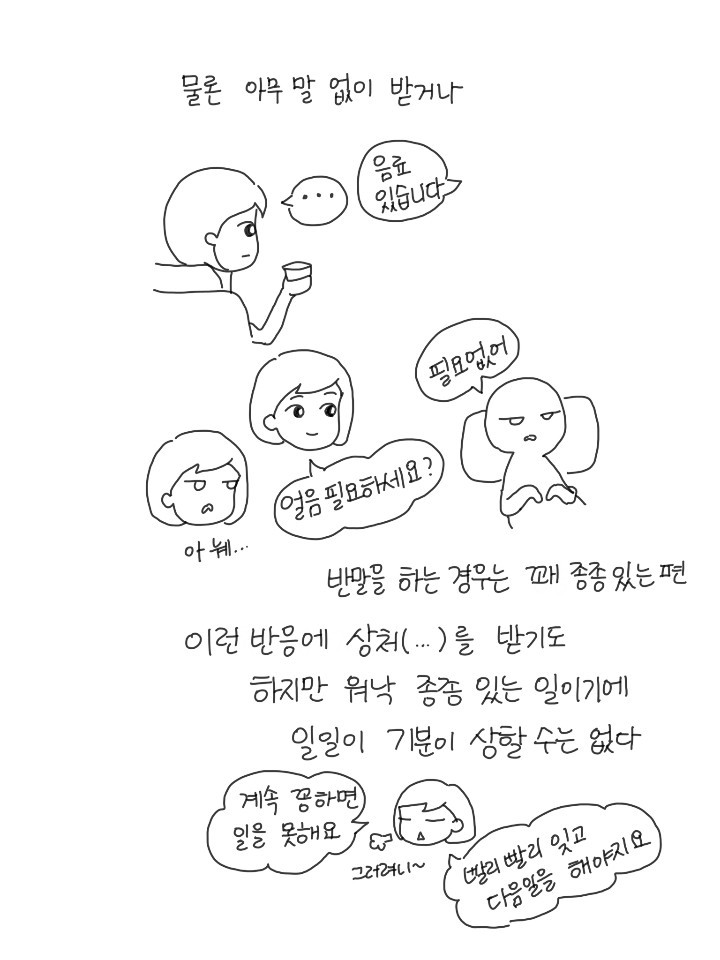 물론 아무 말 없이 받거나
음료
있습니다
...
필요없어
얼음 필요하세요?
아 눼...
반말을 하는 경우는 꽤 종종 있는 편
이런 반응에 상처(...)를 받기도
하지만 워낙 종종 있는 일이기에
일일이 기분이 상할 수는 없다
계속 꽁하면
일을 못해요
그러려니~
빨리빨리 잊고
다음일을 해야지요